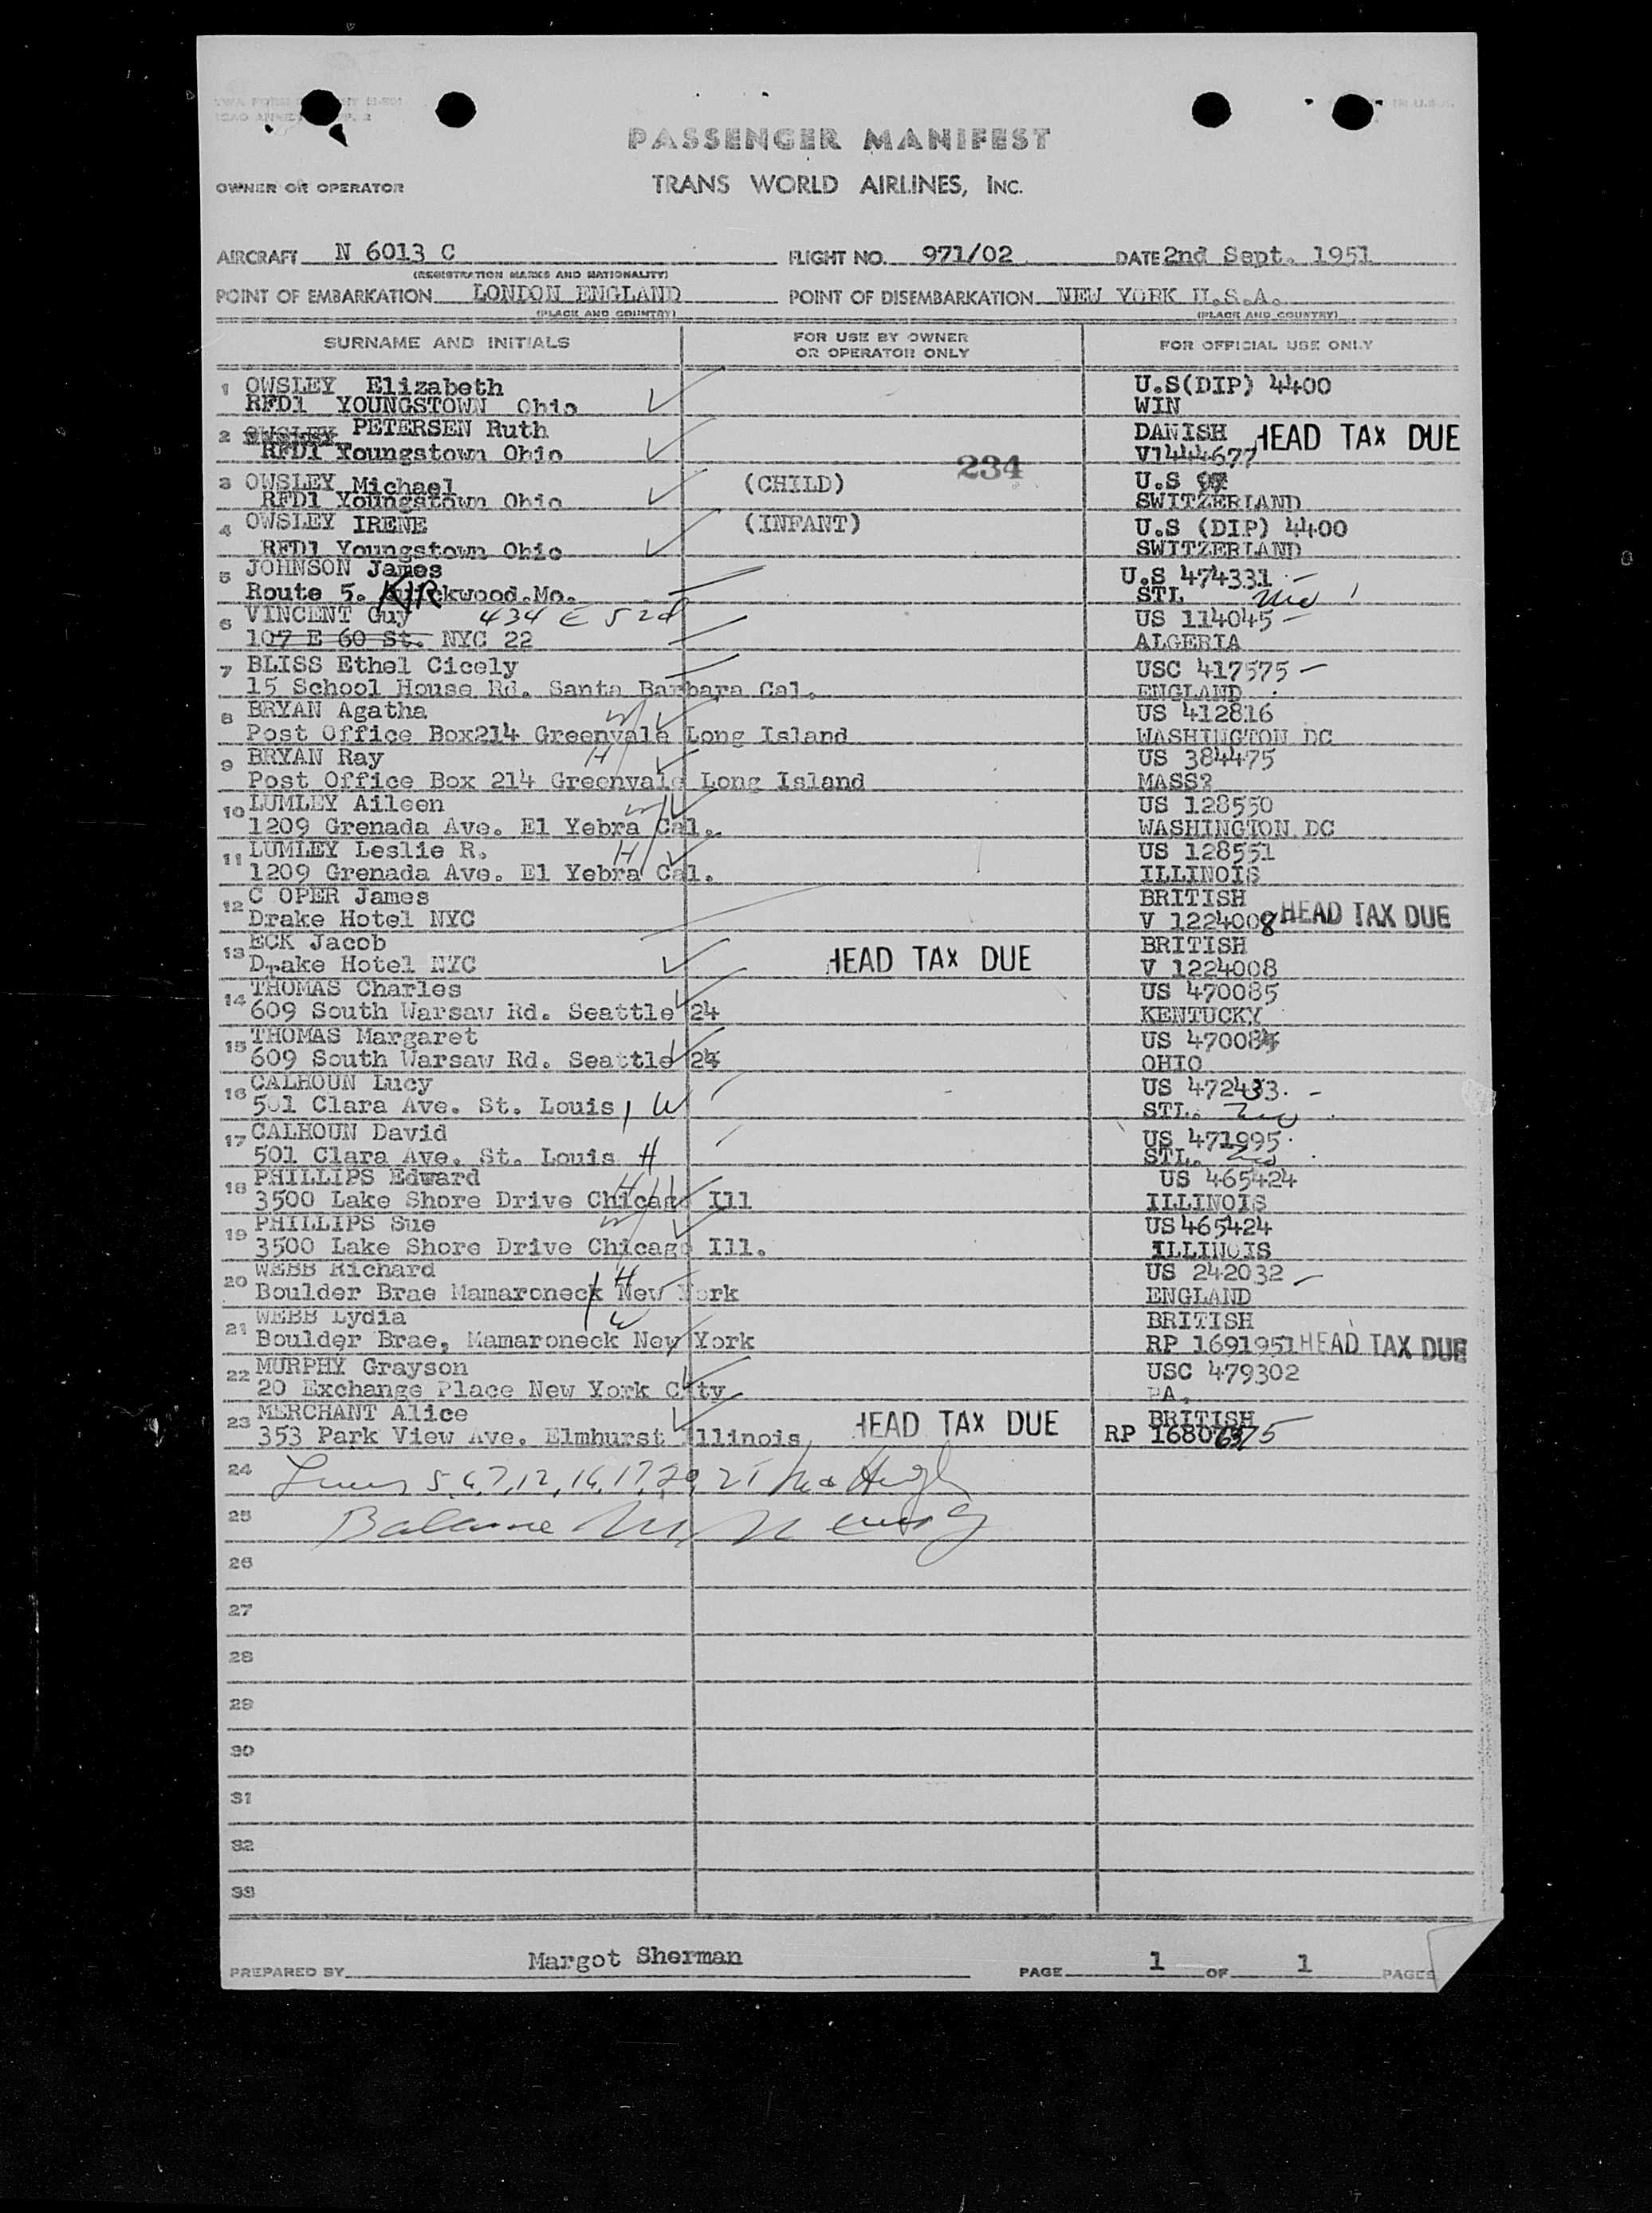 PASSENGER MANIFEST
OWNER OR OPERATOR TRANS WORLD AIRLINES, INC.
AIRCRAFT N 6013 C FLIGHT NO. 971/02 DATE 2nd Sept. 1951
(REGISTRATION MARKS AND NATIONALITY)
POINT OF EMBARKATION LONDON ENGLAND POINT OF DISEMBARKATION NEW YORK U.S.A.
(PLACE AND COUNTRY) (PLACE AND COUNTRY)
SURNAME AND INITIALS FOR USE BY OWNER OR OPERATOR ONLY FOR OFFICIAL USE ONLY
1 OWSLEY Elizabeth U.S(DIP) 4400
RFD1 YOUNGSTOWN Ohio WIN
2 OWSLEY PETERSEN Ruth DANISH HEAD TAX DUE
RFD1 Youngstown Ohio V1444677
234
3 OWSLEY Michael (CHILD) U.S
RFD1 Youngstown Ohio SWITZERLAND
4 OWSLEY IRENE (INFANT) U.S (DIP) 4400
RFD1 Youngstown Ohio SWITZERLAND
5 JOHNSON James U.S 474331
Route 5. KIRckwood.Mo. STL Mo
6 VINCENT Guy 434 E 52d US 114045
107 E 60 St. NYC 22 ALGERIA
7 BLISS Ethel Cicely USC 417575
15 School House Rd. Santa Barbara Cal. ENGLAND
8 BRYAN Agatha W US 412816
Post Office Box214 Greenvale Long Island WASHINGTON DC
9 BRYAN Ray H US 384475
Post Office Box 214 Greenvale Long Island MASS?
10 LUMLEY Aileen W US 128550
1209 Grenada Ave. El Yebra Cal. WASHINGTON DC
11 LUMLEY Leslie R. H US 128551
1209 Grenada Ave. El Yebra Cal. ILLINOIS
12 C OPER James BRITISH
Drake Hotel NYC V 1224008 HEAD TAX DUE
13 ECK Jacob BRITISH
Drake Hotel NYC HEAD TAX DUE V 1224008
14 THOMAS Charles US 470085
609 South Warsaw Rd. Seattle 24 KENTUCKY
15 THOMAS Margaret US 470084
609 South Warsaw Rd. Seattle 24 OHIO
16 CALHOUN Lucy US 472433.
501 Clara Ave. St. Louis W STL. Mo
17 CALHOUN David US 471995
501 Clara Ave. St. Louis H STL. Mo
18 PHILLIPS Edward H US 465424
3500 Lake Shore Drive Chicago Ill ILLINOIS
19 PHILLIPS Sue W US465424
3500 Lake Shore Drive Chicago Ill. ILLINOIS
20 WEBB Richard H US 242032
Boulder Brae Mamaroneck New York ENGLAND
21 WEBB Lydia W BRITISH
Boulder Brae, Mamaroneck New York RP 1691951 HEAD TAX DUE
22 MURPHY Grayson USC 479302
20 Exchange Place New York City PA.
23 MERCHANT Alice HEAD TAX DUE BRITISH
353 Park View Ave. Elmhurst Illinois RP
24 5, 6, 7, 12, 16, 17, 20, 21
25 Balance
26
27
28
29
30
31
32
33
PREPARED BY Margot Sherman PAGE 1 OF 1 PAGES